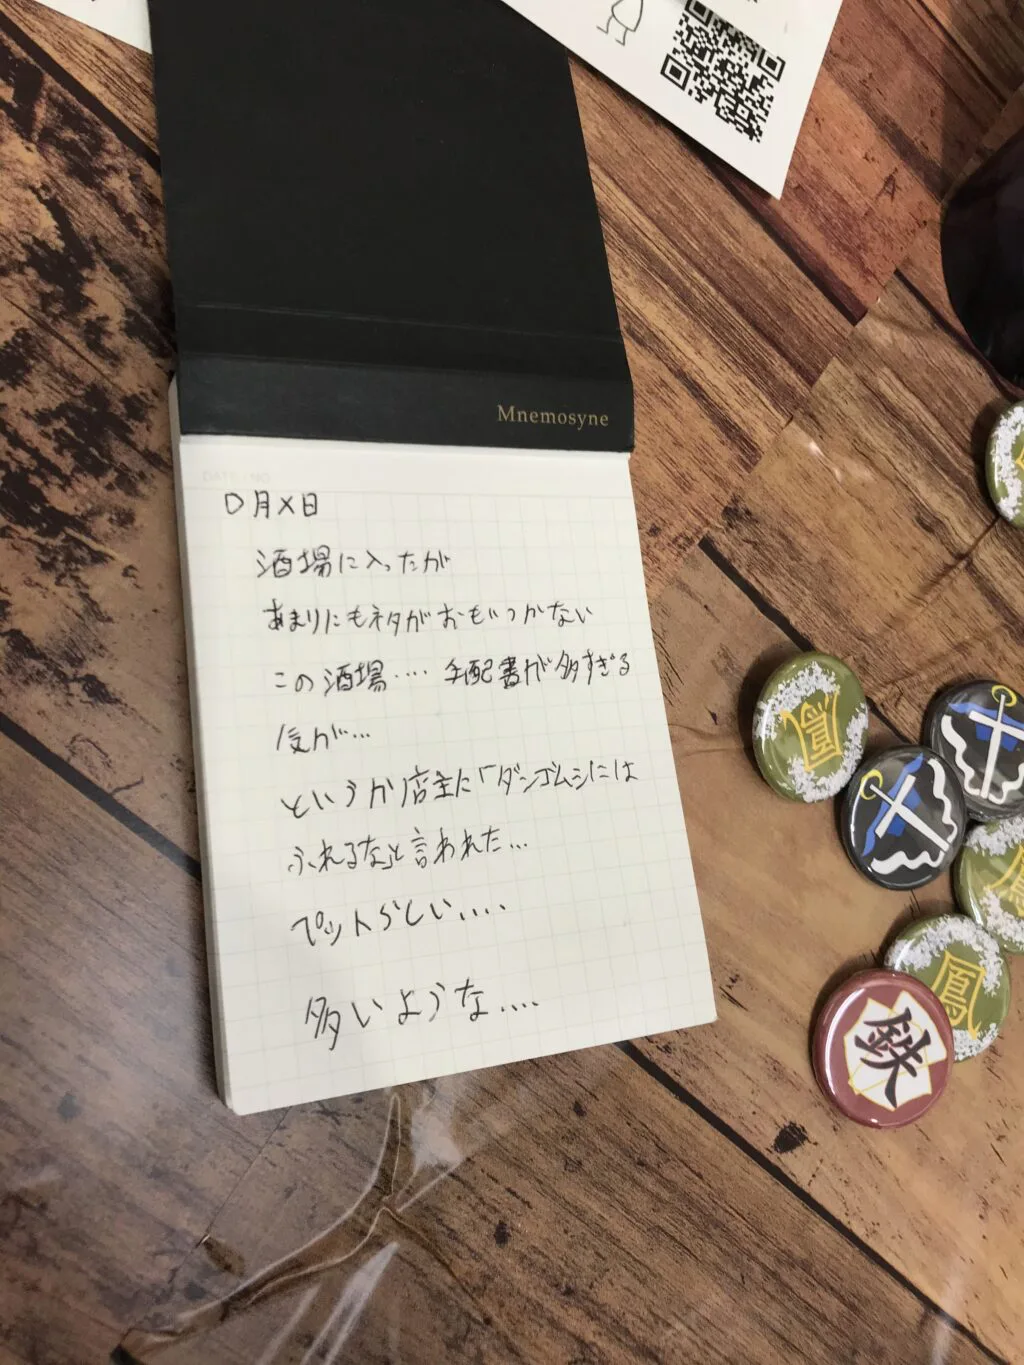 Mnemosyne
〇月×日
酒場に入ったが
あまりにもネタがおもいつかない
この酒場.... 手配書が多すぎる
気が...
というか店主に「ダンゴムシには
ふれるな」と言われた...
ペットらしい....
多いような....
鳳
鳳
鉄